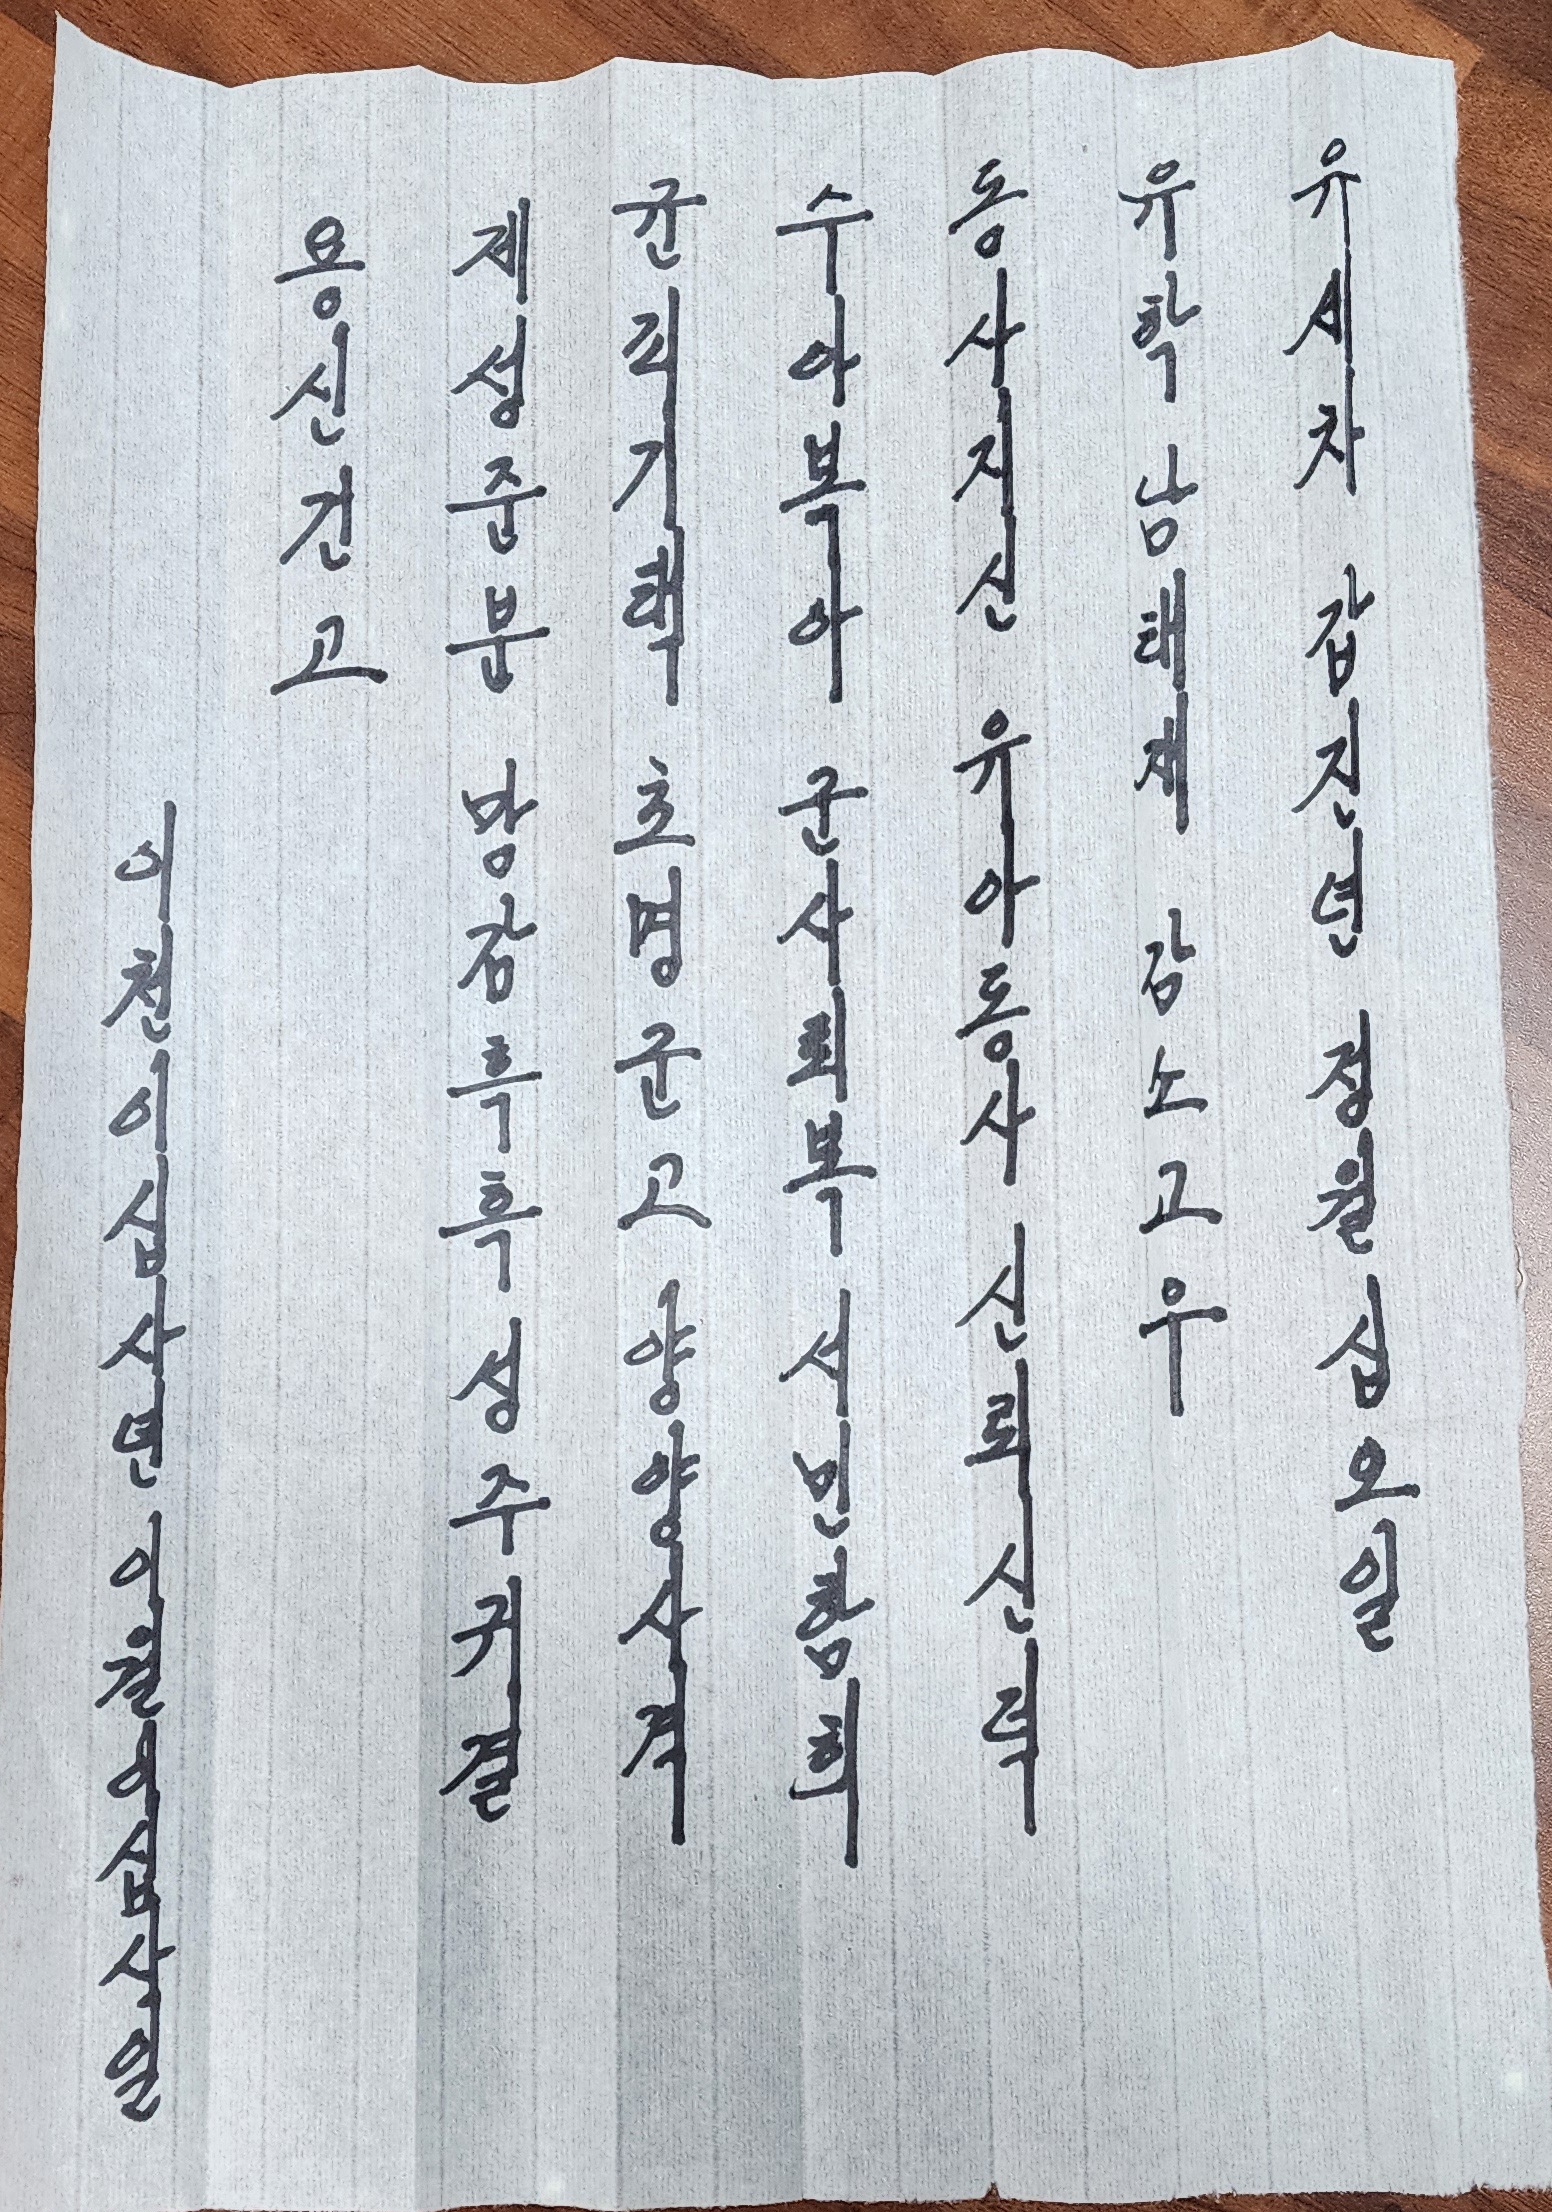 유세차 갑진년 정월 십오일
유학 남태재 감소고우
동사지신 유아동사 신뢰신력
수아복아 군사뢰복 서민함희
균피기택 초명군고 양양사격
제성준분 망감흑흑 성주귀결
용신건고
이천이십사년 이월이십사일